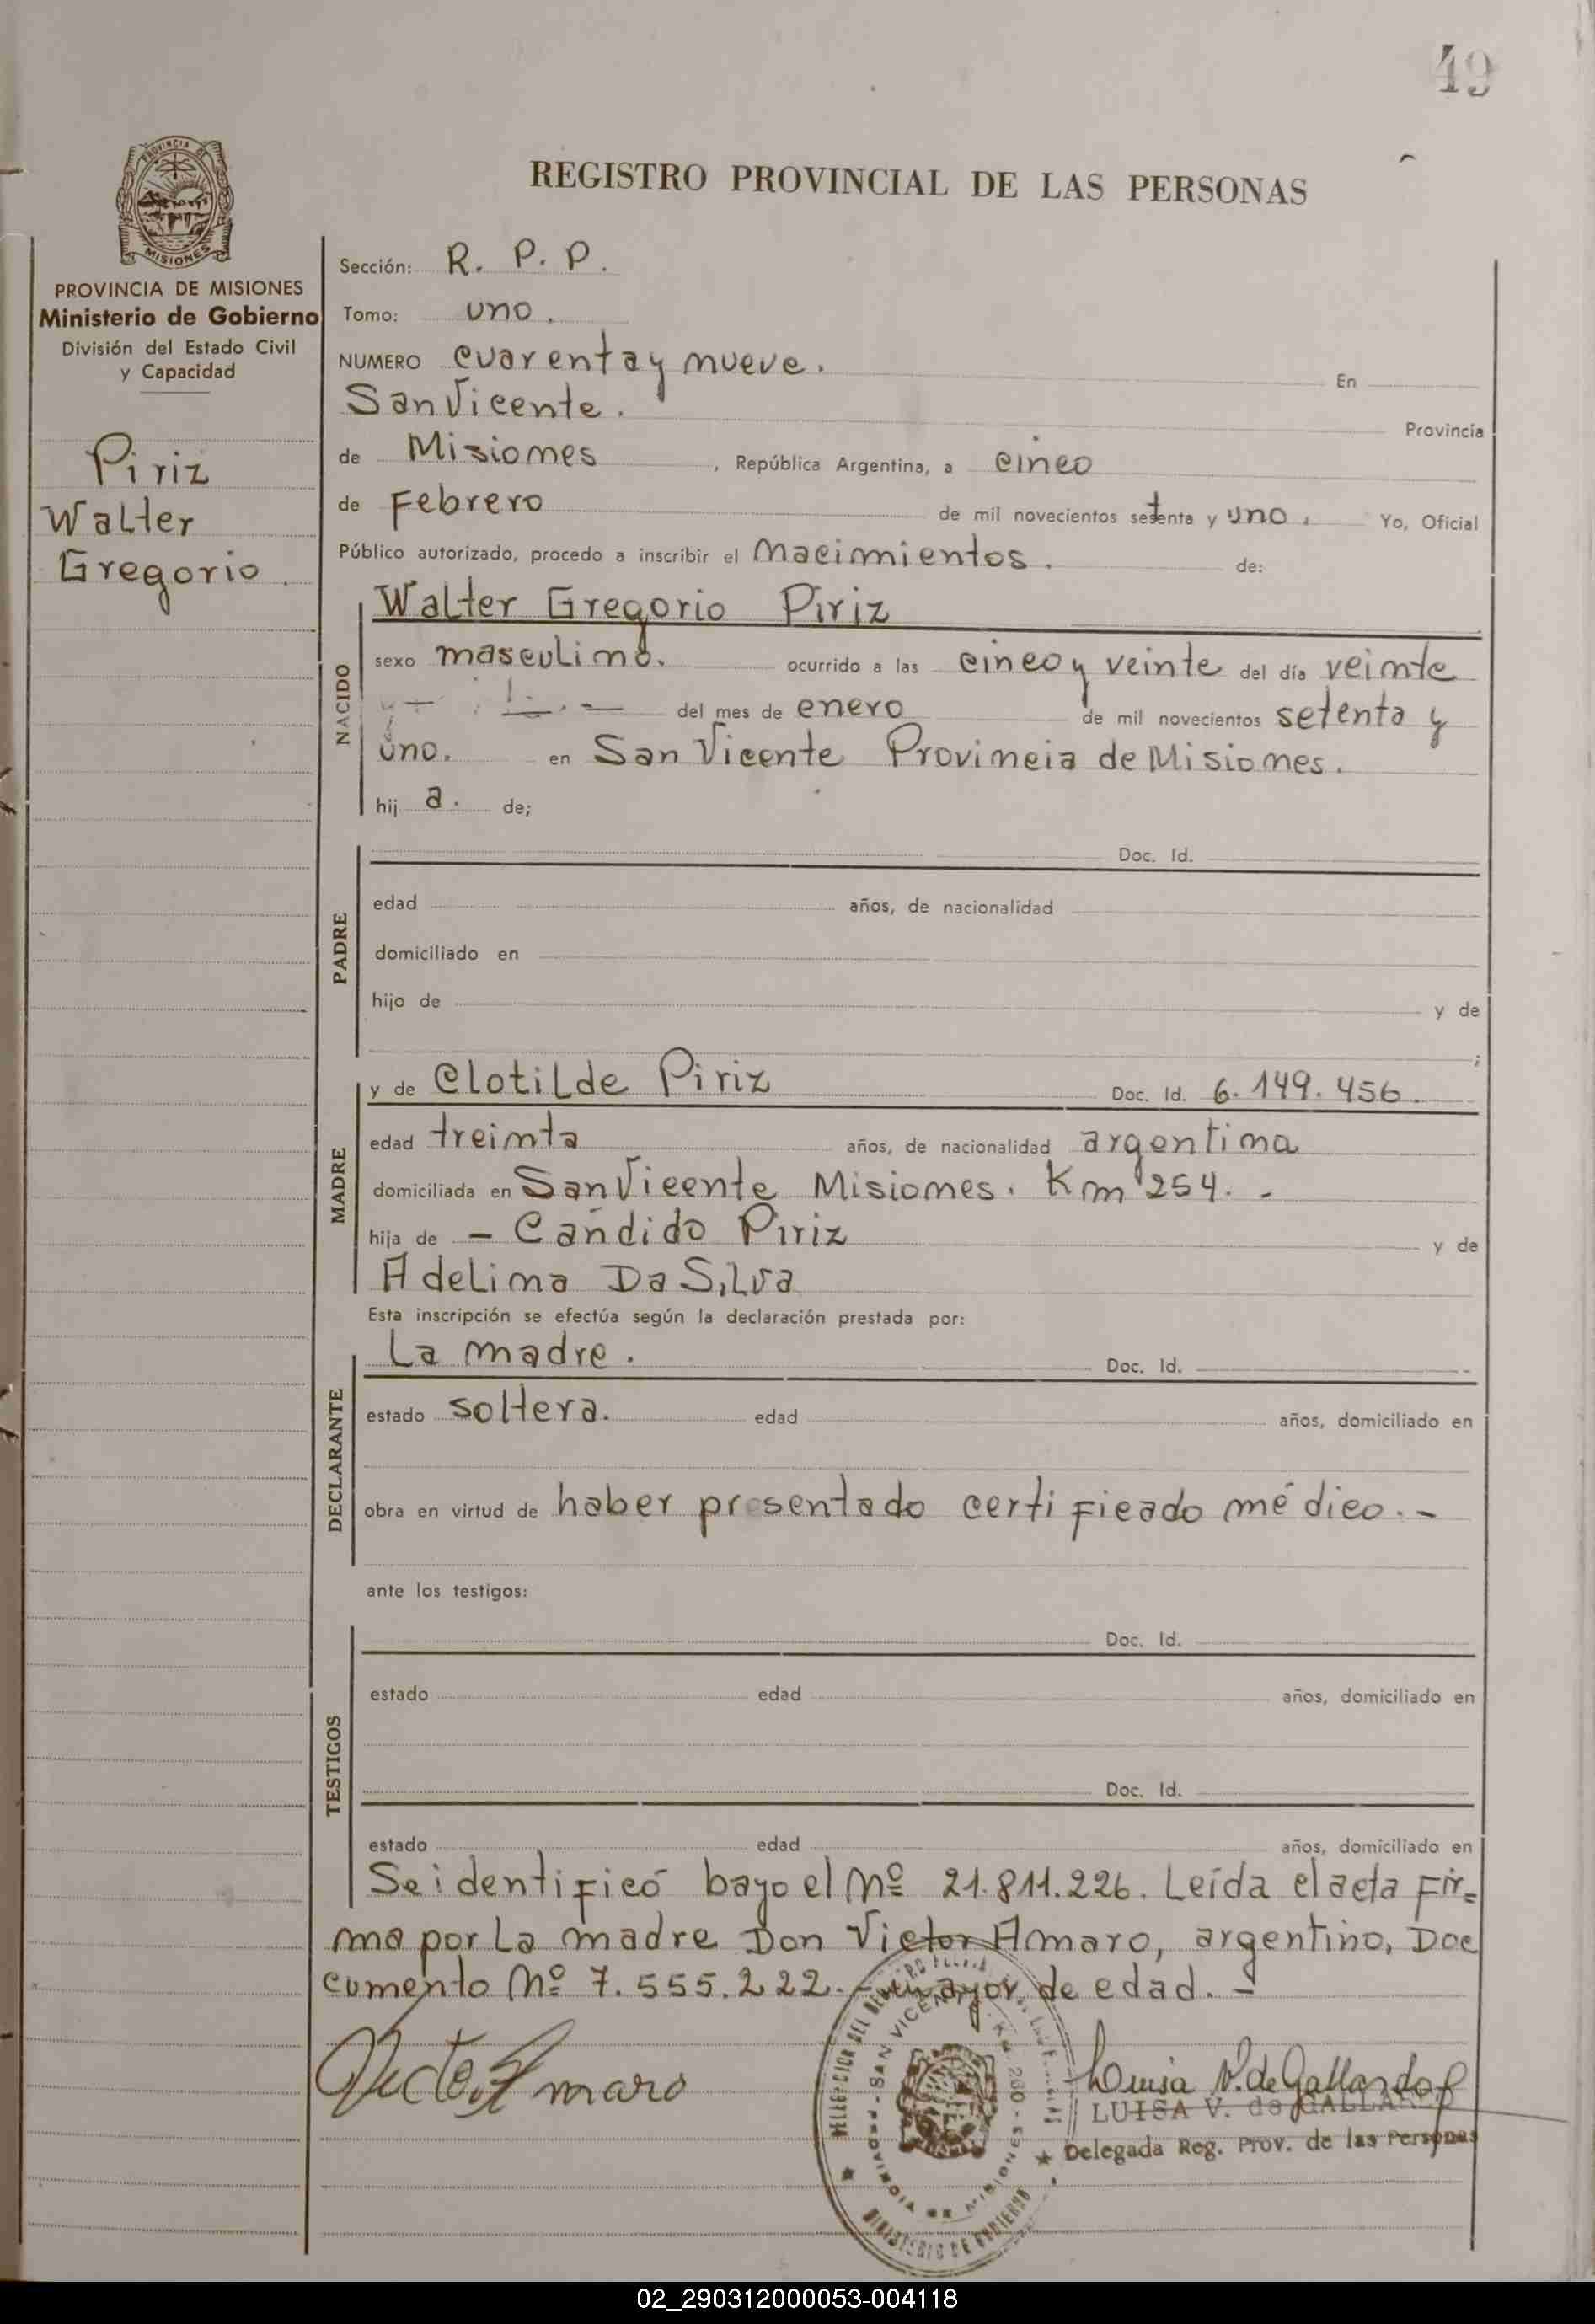 49
REGISTRO PROVINCIAL DE LAS PERSONAS
PROVINCIA DE
MISIONES
PROVINCIA DE MISIONES
Ministerio de Gobierno
División del Estado Civil
y Capacidad
Piriz
Walter
Gregorio.
Sección: R. P. P.
Tomo: uno.
NUMERO cuarenta y nueve. En
San Vicente. Provincia
de Misiones, República Argentina, a cinco
de Febrero de mil novecientos setenta y uno. Yo, Oficial
Público autorizado, procedo a inscribir el nacimientos. de:
NACIDO
Walter Gregorio Piriz
sexo masculino. ocurrido a las cinco y veinte del día veinte
del mes de enero de mil novecientos setenta y
uno. en San Vicente Provincia de Misiones.
hij a. de;
PADRE
Doc. Id.
edad años, de nacionalidad
domiciliado en
hijo de y de
;
MADRE
y de Clotilde Piriz Doc. Id. 6.149.456.
edad treinta años, de nacionalidad argentina
domiciliada en San Vicente Misiones. Km 254. -
hija de - Candido Piriz y de
Adelina Da Silva
Esta inscripción se efectúa según la declaración prestada por:
DECLARANTE
La madre. Doc. Id.
estado soltera. edad años, domiciliado en
obra en virtud de haber presentado certificado médico. -
ante los testigos:
TESTIGOS
Doc. Id.
estado edad años, domiciliado en
Doc. Id.
estado edad años, domiciliado en
Se identificó bajo el Nº 21.811.226. Leída el acta fir=
ma por La madre Don Victor Amaro, argentino, Doc
cumento Nº 7.555.222. - mayor de edad. -
Victor Amaro
Luisa V. de Gallardo
LUISA V. de GALLARDO
Delegada Reg. Prov. de las Personas
SAN VICENTE - Km. 260 -
PROVINCIA DE MISIONES
MINISTERIO DE GOBIERNO
02_290312000053-004118